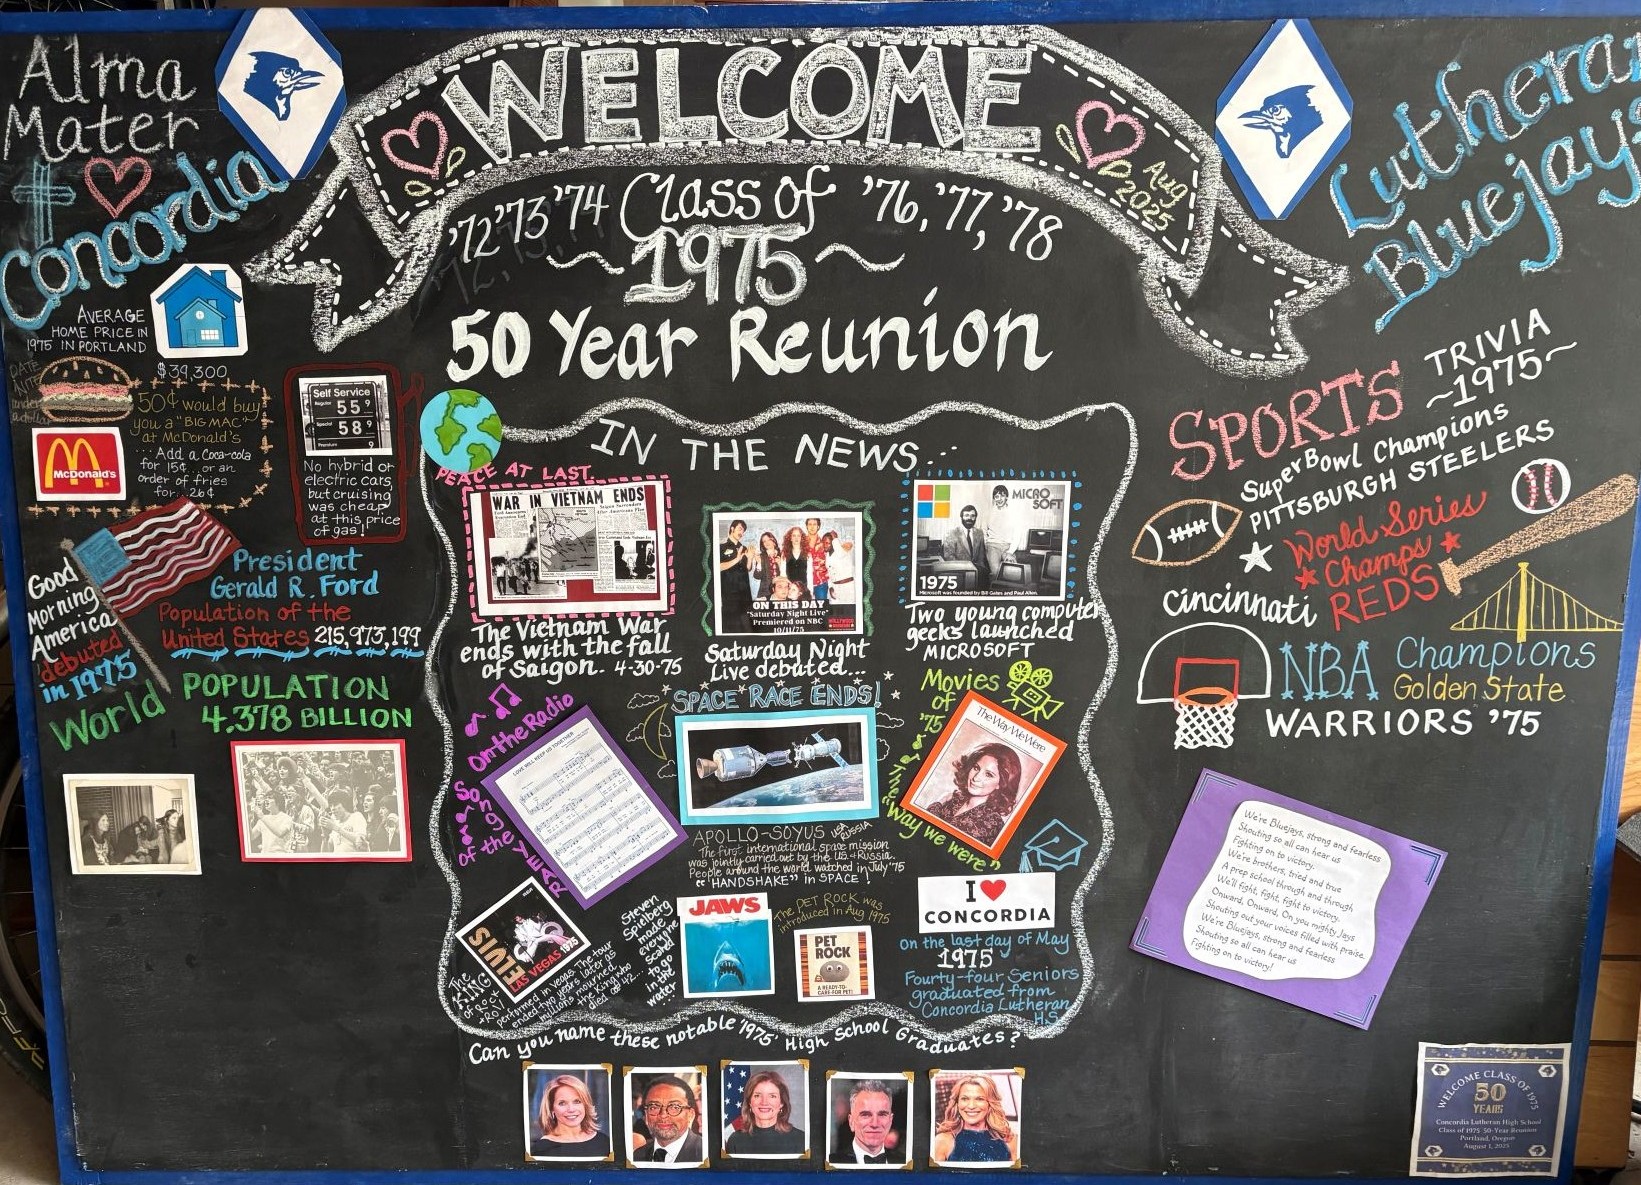 Alma
Mater
Concordia
WELCOME
Aug
2025
'72 '73 '74 Class of '76, '77, '78
~1975~
50 Year Reunion
Lutheran
Bluejays
AVERAGE
HOME PRICE IN
1975 IN PORTLAND
$39,300
50¢ would buy
you a "BIG MAC"
at McDonald's
...Add a Coca-cola
for 15¢...or an
order of fries
for...26¢
McDonald's
Self Service
Regular 55 9
Special 58 9
Premium 9
No hybrid or
electric cars,
but cruising
was cheap
at this price
of gas!
Good
Morning
America
debuted
in 1975
President
Gerald R. Ford
Population of the
United States 215,973,199
World POPULATION
4.378 BILLION
IN THE NEWS...
PEACE AT LAST...
WAR IN VIETNAM ENDS
The Vietnam War
ends with the fall
of Saigon. 4-30-75
ON THIS DAY
"Saturday Night Live"
Premiered on NBC
10/11/75
Saturday Night
Live debuted...
MICROSOFT
1975
Microsoft was founded by Bill Gates and Paul Allen.
Two young computer
geeks launched
MICROSOFT
On the Radio
Song
of the YEAR
LOVE WILL KEEP US TOGETHER
SPACE RACE ENDS!
APOLLO-SOYUS USA RUSSIA
The first international space mission
was jointly carried out by the U.S. & Russia.
People around the world watched in July '75
"HANDSHAKE" in SPACE!
Movies
of
'75
The Way We Were
The "Way we were"
ELVIS
LAS VEGAS 1975
The
KING
of rock
+ Roll
performed in Vegas. The tour
ended two years later as
millions mourned
the King who
died at 42...
Steven
Spielberg
made
everyone
scared
to go
in the
water
JAWS
The PET ROCK was
introduced in Aug 1975
PET
ROCK
A READY-TO-
CARE-FOR PET!
I
CONCORDIA
on the last day of May
1975
Fourty-four Seniors
graduated from
Concordia Lutheran
H.S.
Can you name these notable '1975' High School Graduates?
SPORTS TRIVIA
~1975~
SuperBowl Champions
PITTSBURGH STEELERS
World Series
Champs
Cincinnati REDS
NBA Champions
Golden State
WARRIORS '75
We're Bluejays, strong and fearless
Shouting so all can hear us
Fighting on to victory.
We're brothers, tried and true
A prep school through and through
We'll fight, fight, fight to victory.
Onward, Onward, On you mighty Jays
Shouting out your voices filled with praise.
We're Bluejays, strong and fearless
Shouting so all can hear us
Fighting on to victory!
WELCOME CLASS OF 1975
50
YEARS
Concordia Lutheran High School
Class of 1975 50-Year Reunion
Portland, Oregon
August 1, 2025